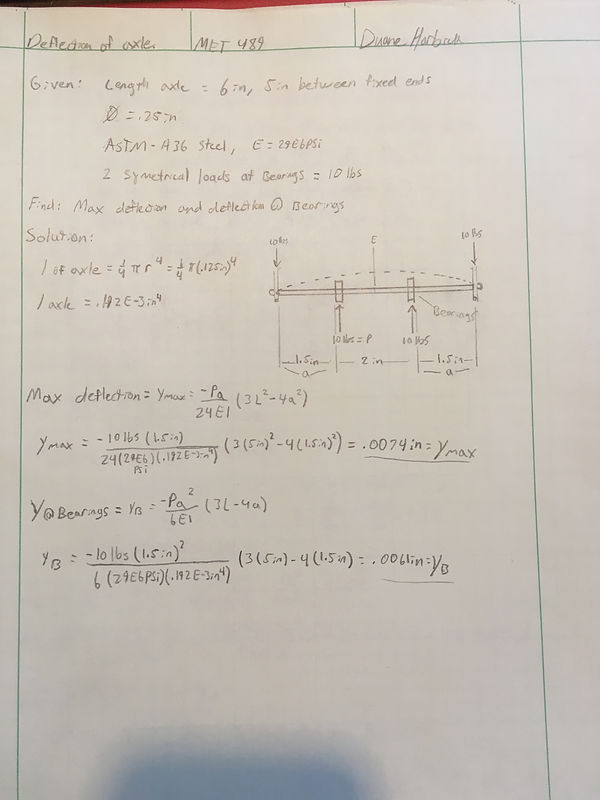 Deflection of axle MET 489 Duane Harbick
Given: Length axle = 6 in, 5 in between fixed ends
Ø = .25 in
ASTM-A36 Steel, E = 29E6 PSi
2 Symetrical loads at Bearings = 10 lbs
Find: Max deflection and deflection @ Bearings
Solution:
I of axle = 1/4 π r^4 = 1/4 π (.125in)^4
I axle = .192E-3in^4
10 lbs E 10 lbs
Bearings
10 lbs = P 10 lbs
1.5in 2 in 1.5in
a a
Max deflection = Ymax = -Pa/24EI (3L^2-4a^2)
Ymax = -10 lbs (1.5in)/24(29E6 PSi)(.192E-3in^4) (3(5in)^2-4(1.5in)^2) = .0074in = Ymax
Y@Bearings = YB = -Pa^2/6EI (3L-4a)
YB = -10 lbs (1.5in)^2/6(29E6PSi)(.192E-3in^4) (3(5in)-4(1.5in) = .0061in = YB